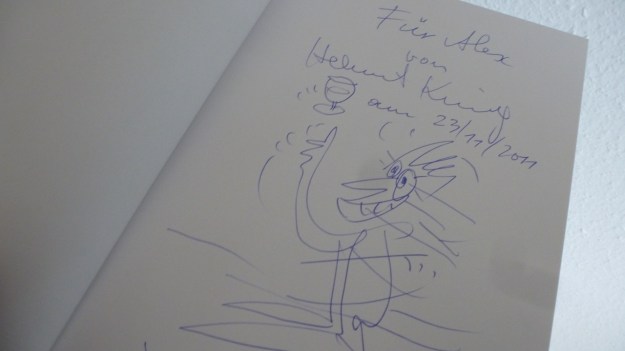 Für Alex
von
Helmut
am 23/11/2011